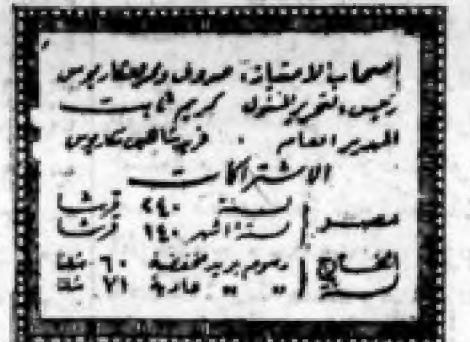 أصحاب الامتياز: صروف ونمر ومكاريوس
رئيس التحرير المسئول كريم ثابت
المدير العام . فريد شاهين مكاريوس
الاشتراكات
مصر لسنة ٢٤٠ قرشا
لستة أشهر ١٤٠ قرشا
الخارج رسوم بريد مخفضة ٦٠ شلنا
لسنة " " عادية ٧١ شلنا